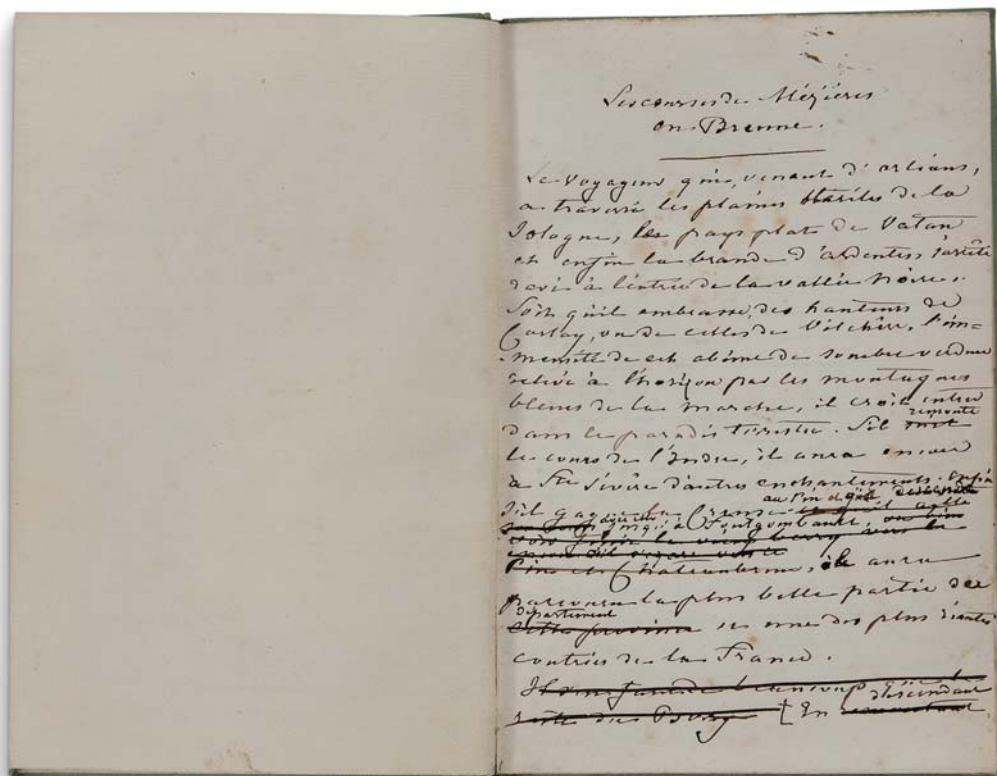 Les courses de Mézières
en Brenne.
Le voyageur qui, venant d'orléans,
a traversé les plaines stériles de la
Sologne, les pays plats de Vatan
et enfin la brande d'ardentes s'arrête
ravi à l'entrée de la vallée noire.
Soit qu'il embrasse, des hauteurs de
Corlay, ou de celles de Vilchère, l'im=
mensité de cet abîme de sombre verdure
relevé à l'horizon par les montagnes
bleues de la marche, il croit entrer
dans le paradis terrestre. S'il remonte
le cours de l'Indre, il aura encore
à Ste Sévère d'autres enchantements. Enfin
s'il gagne la Creuse au Pin et
jusqu'à Fontgombault,
Châteaubrun, il aura
parcouru la plus belle partie de
département et une des plus riantes
contrées de la France.
Il
reste du Berry En descendant